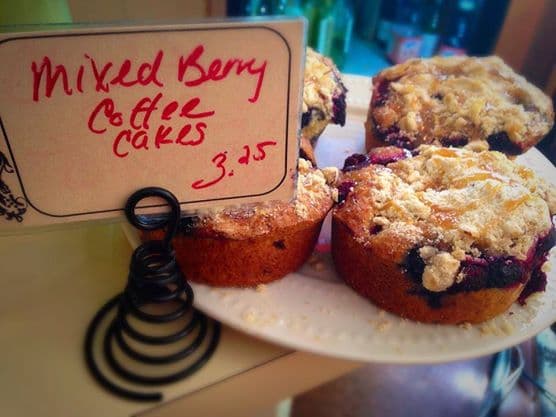 Mixed Berry
Coffee
Cakes
3.25